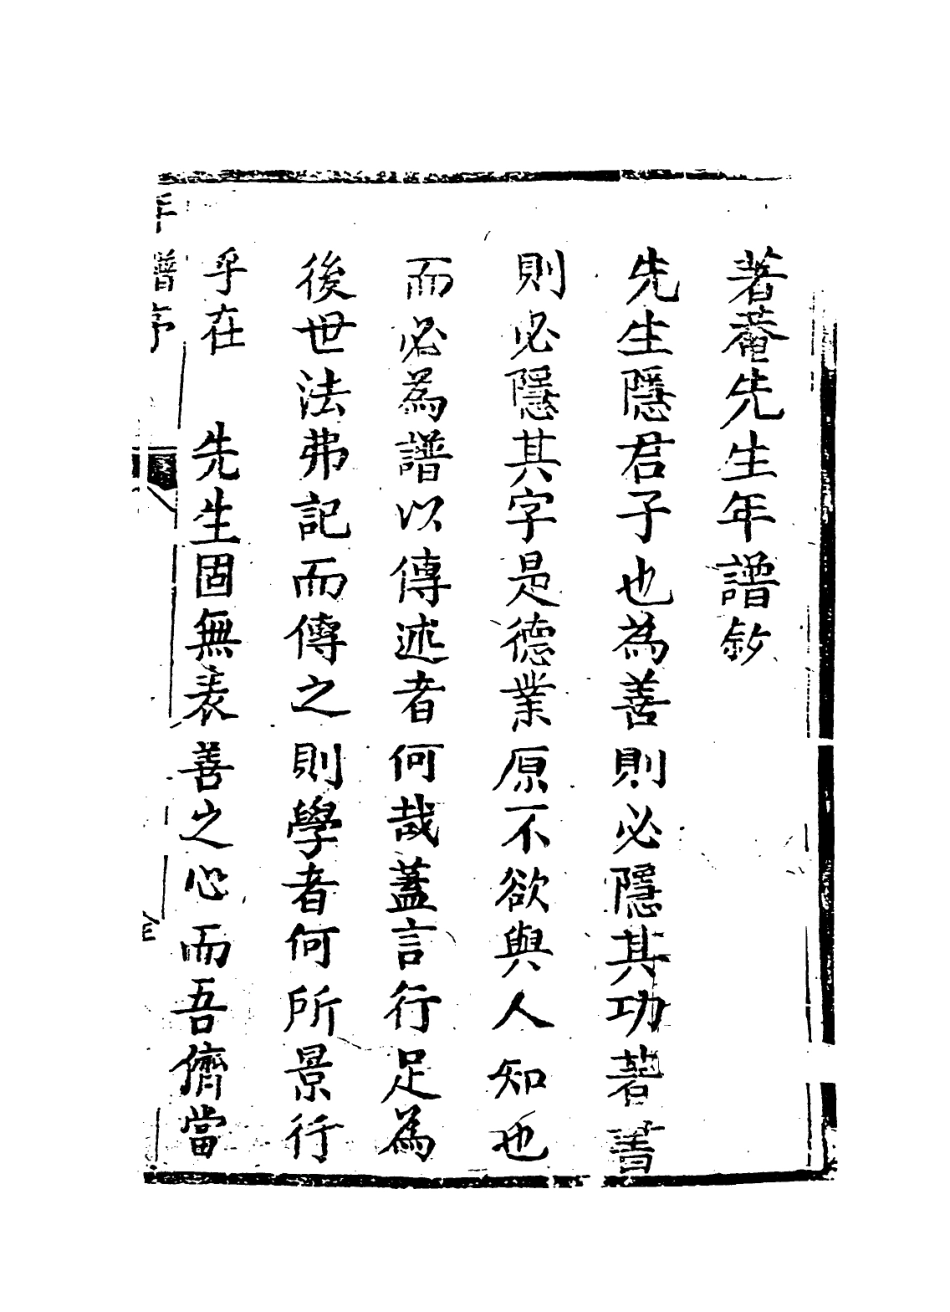 著菴先生年譜鈔
先生隱君子也為善則必隱其功著書
則必隱其字是德業原不欲與人知也
而必為譜以傳述者何哉蓋言行足為
後世法弗記而傳之則學者何所景行
乎在　先生固無表善之心而吾儕當
年譜序